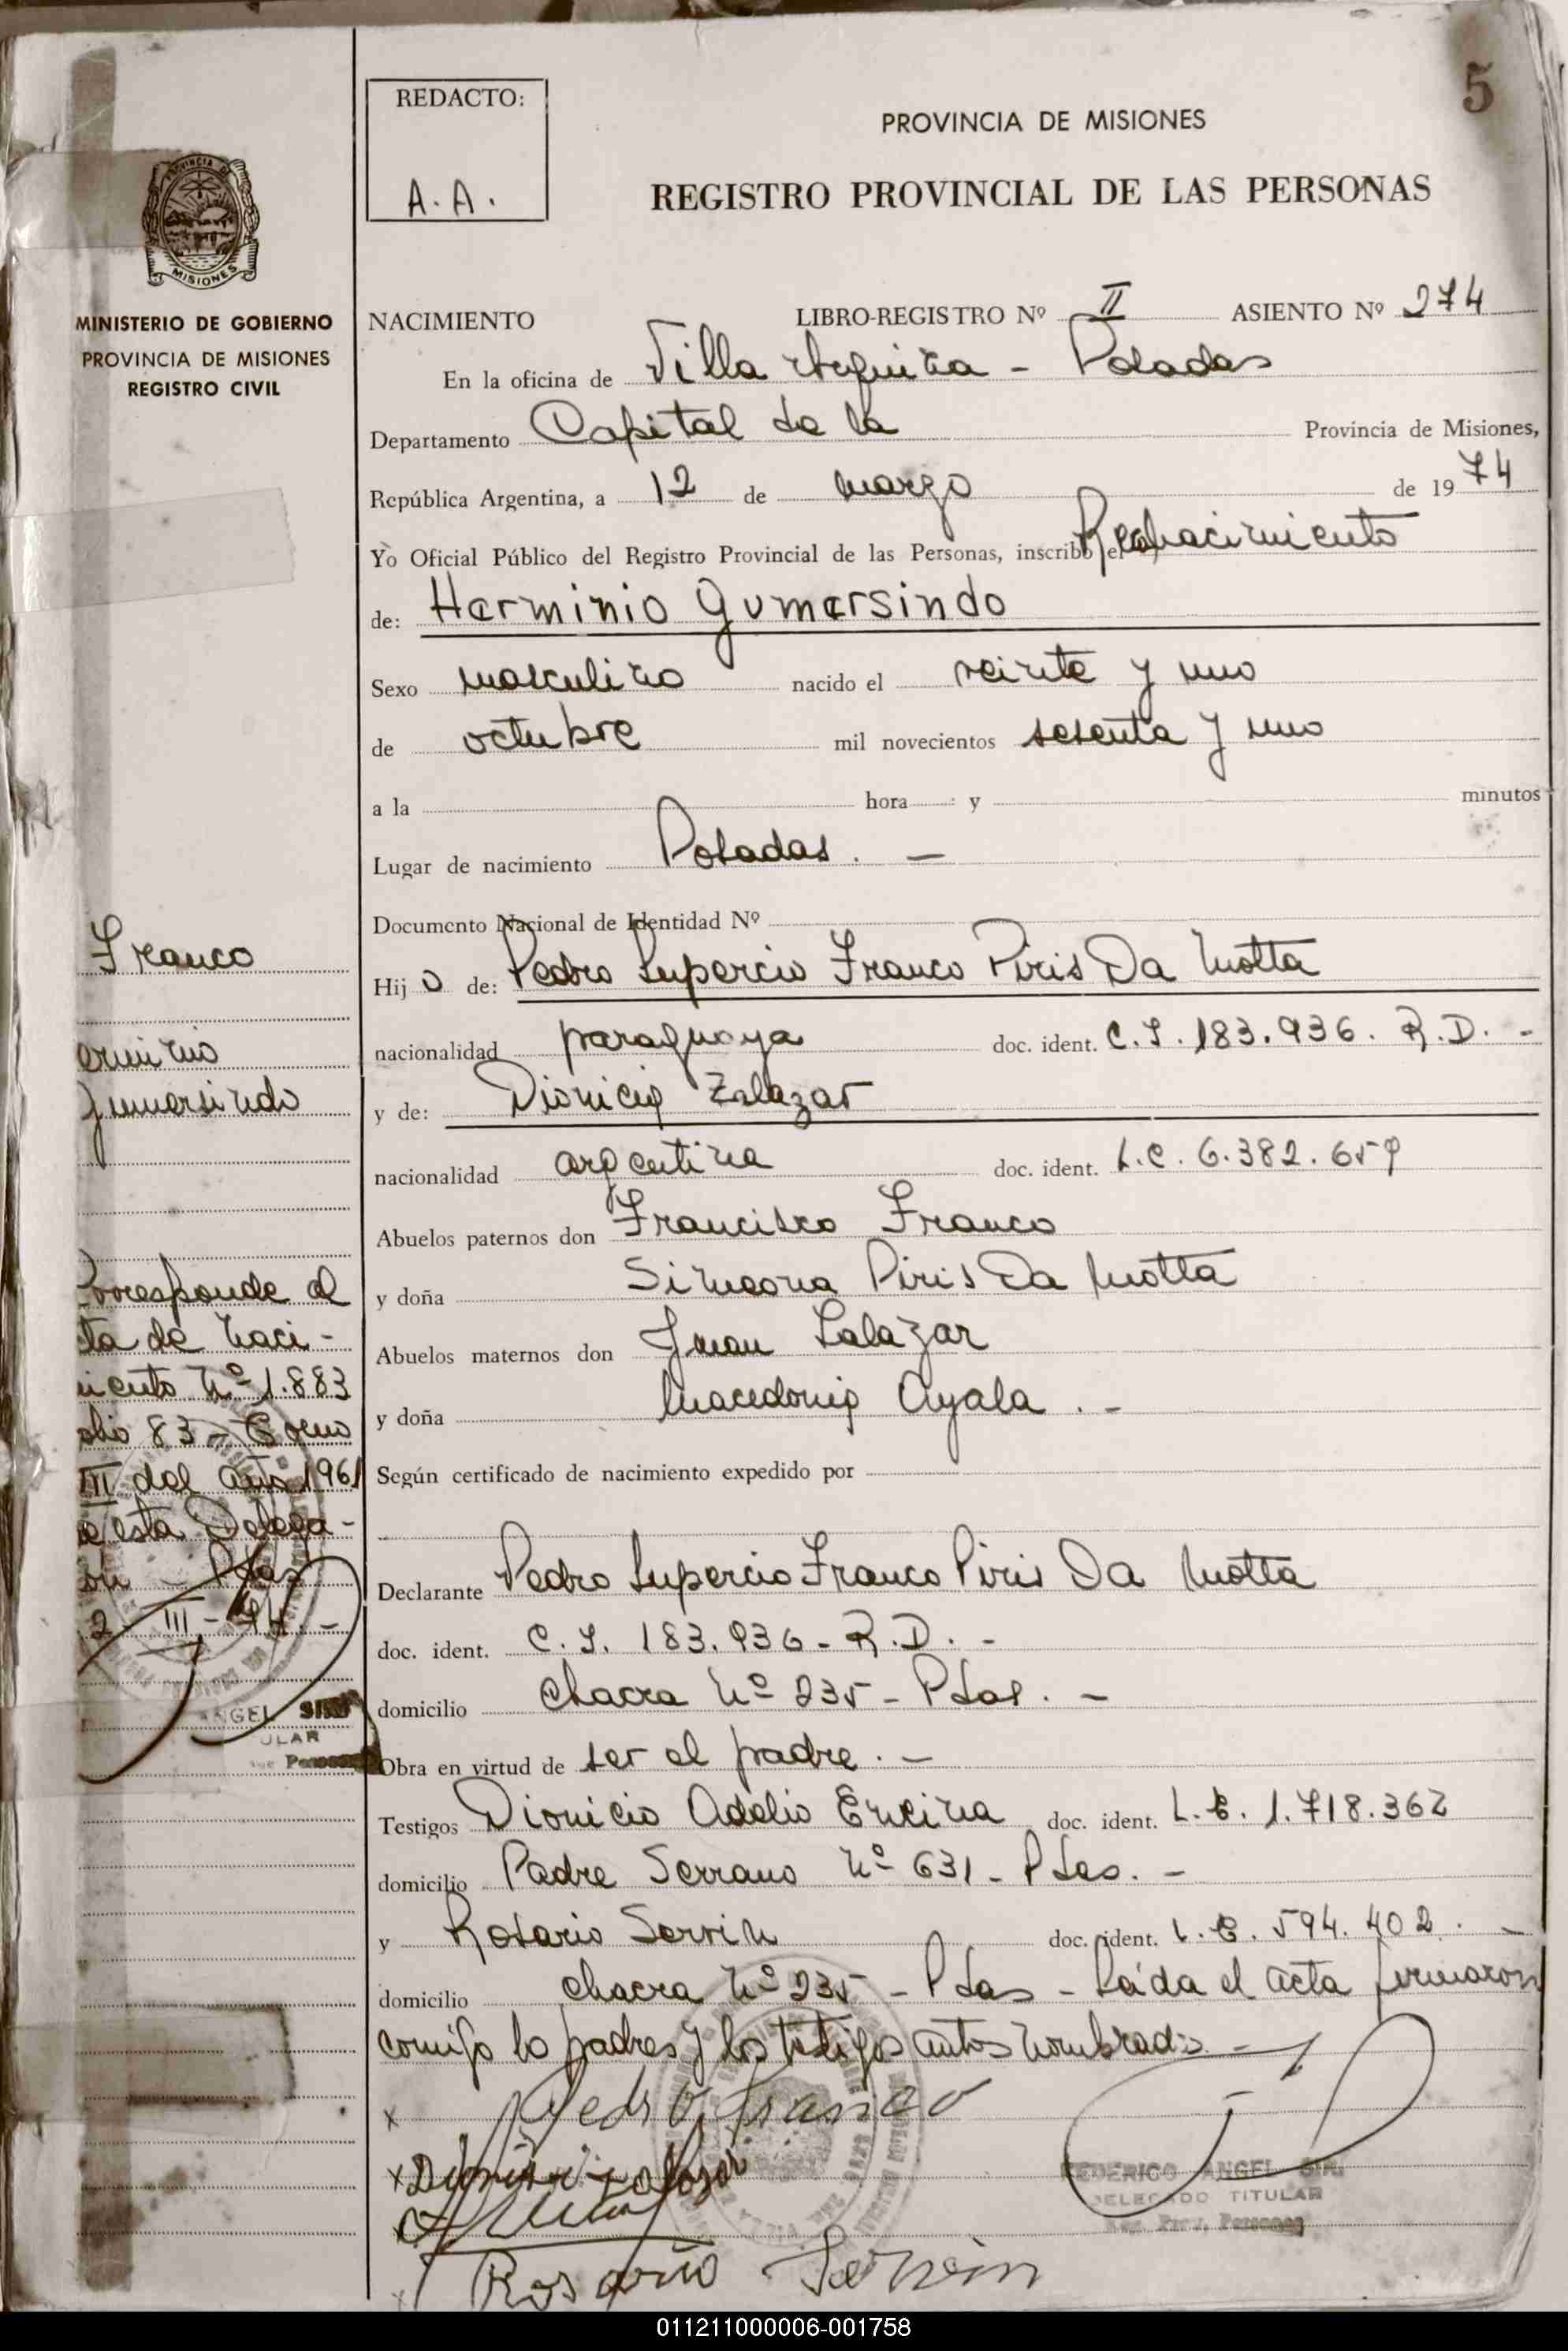 5
REDACTO:
A. A.
PROVINCIA DE MISIONES
REGISTRO PROVINCIAL DE LAS PERSONAS
MISIONES
MINISTERIO DE GOBIERNO
PROVINCIA DE MISIONES
REGISTRO CIVIL
NACIMIENTO LIBRO-REGISTRO Nº II ASIENTO Nº 274
En la oficina de Villa Urquiza - Posadas
Departamento Capital de la Provincia de Misiones,
República Argentina, a 12 de marzo de 1974
Yo Oficial Público del Registro Provincial de las Personas, inscribo el
de: Herminio Gumersindo
Sexo masculino nacido el veinte y uno
de octubre mil novecientos sesenta y uno
a la hora y minutos
Lugar de nacimiento Posadas. -
Documento Nacional de Identidad Nº
Hijo de: Pedro Lupercio Franco Piris Da Motta
nacionalidad paraguaya doc. ident. C.I. 183.936. R.D. -
y de: Dionicia Zalazar
nacionalidad argentina doc. ident. L.C. 6.382.659
Abuelos paternos don Francisco Franco
y doña Simeona Piris Da Motta
Abuelos maternos don Juan Salazar
y doña Macedonia Ayala. -
Según certificado de nacimiento expedido por
Declarante Pedro Lupercio Franco Piris Da Motta
doc. ident. C.I. 183.936 - R.D. -
domicilio Chacra Nº 235 - Pdas. -
Obra en virtud de ser el padre. -
Testigos Dionicio Adelio Encina doc. ident. L.E. 1.718.362
domicilio Padre Serrano Nº 631 - Pdas. -
y Rosario Servin doc. ident. L.E. 594.402. -
domicilio Chacra Nº 235 - Pdas - Leída el acta firmaron
conmigo lo padres y los testigos antes nombrados. -
x Pedro Franco
x Dionicia Zalazar
Rosario Servin
FEDERICO ANGEL SIRI
DELEGADO TITULAR
Reg. Prov. Personas
Franco
erminio
Gumersindo
Corresponde al
ta de naci-
miento Nº 1.883
olio 83 - Tomo
III del año 1961
e esta Delega-
ón - Pdas
2 - III - 74. -
ANGEL SIRI
ULAR
Personas
011211000006-001758